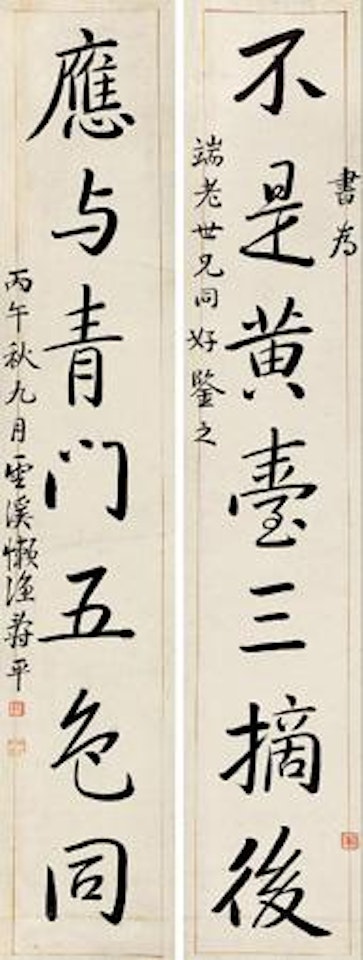 不是黄臺三摘後
書為
端老世兄同好鑒之
應与青门五色同
丙午秋九月雲溪懒漁蒋平